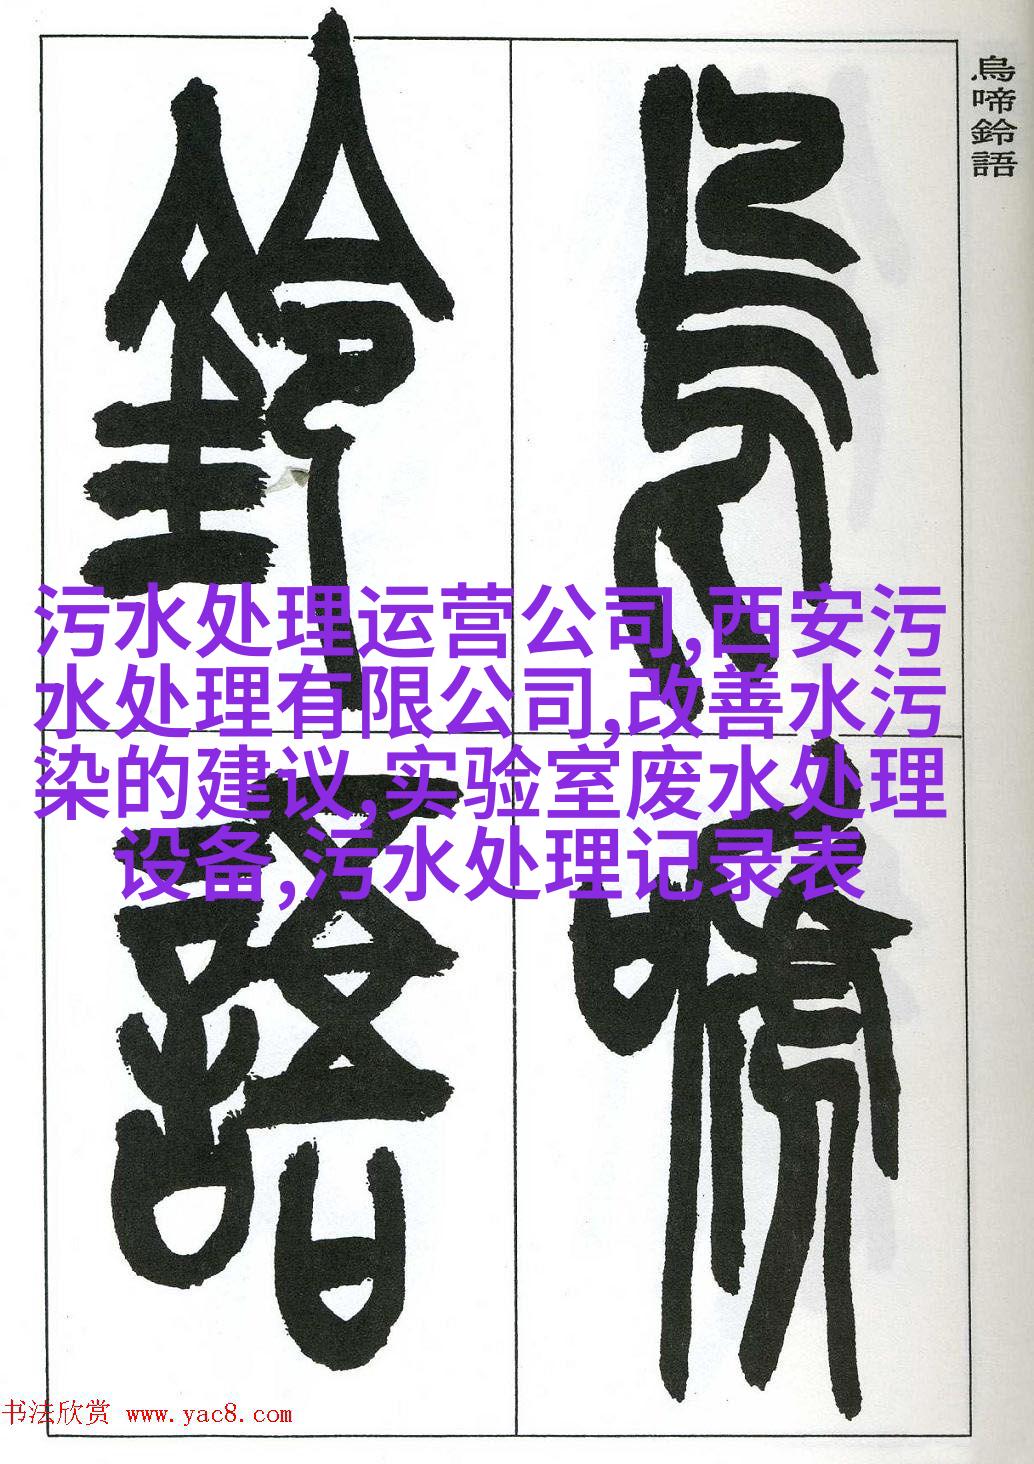 鳥啼鈴語
鳥啼
鈴語
污水处理运营公司,西安污
水处理有限公司,改善水污
染的建议,实验室废水处理
设备,污水处理记录表
书法欣赏 www.yac8.com